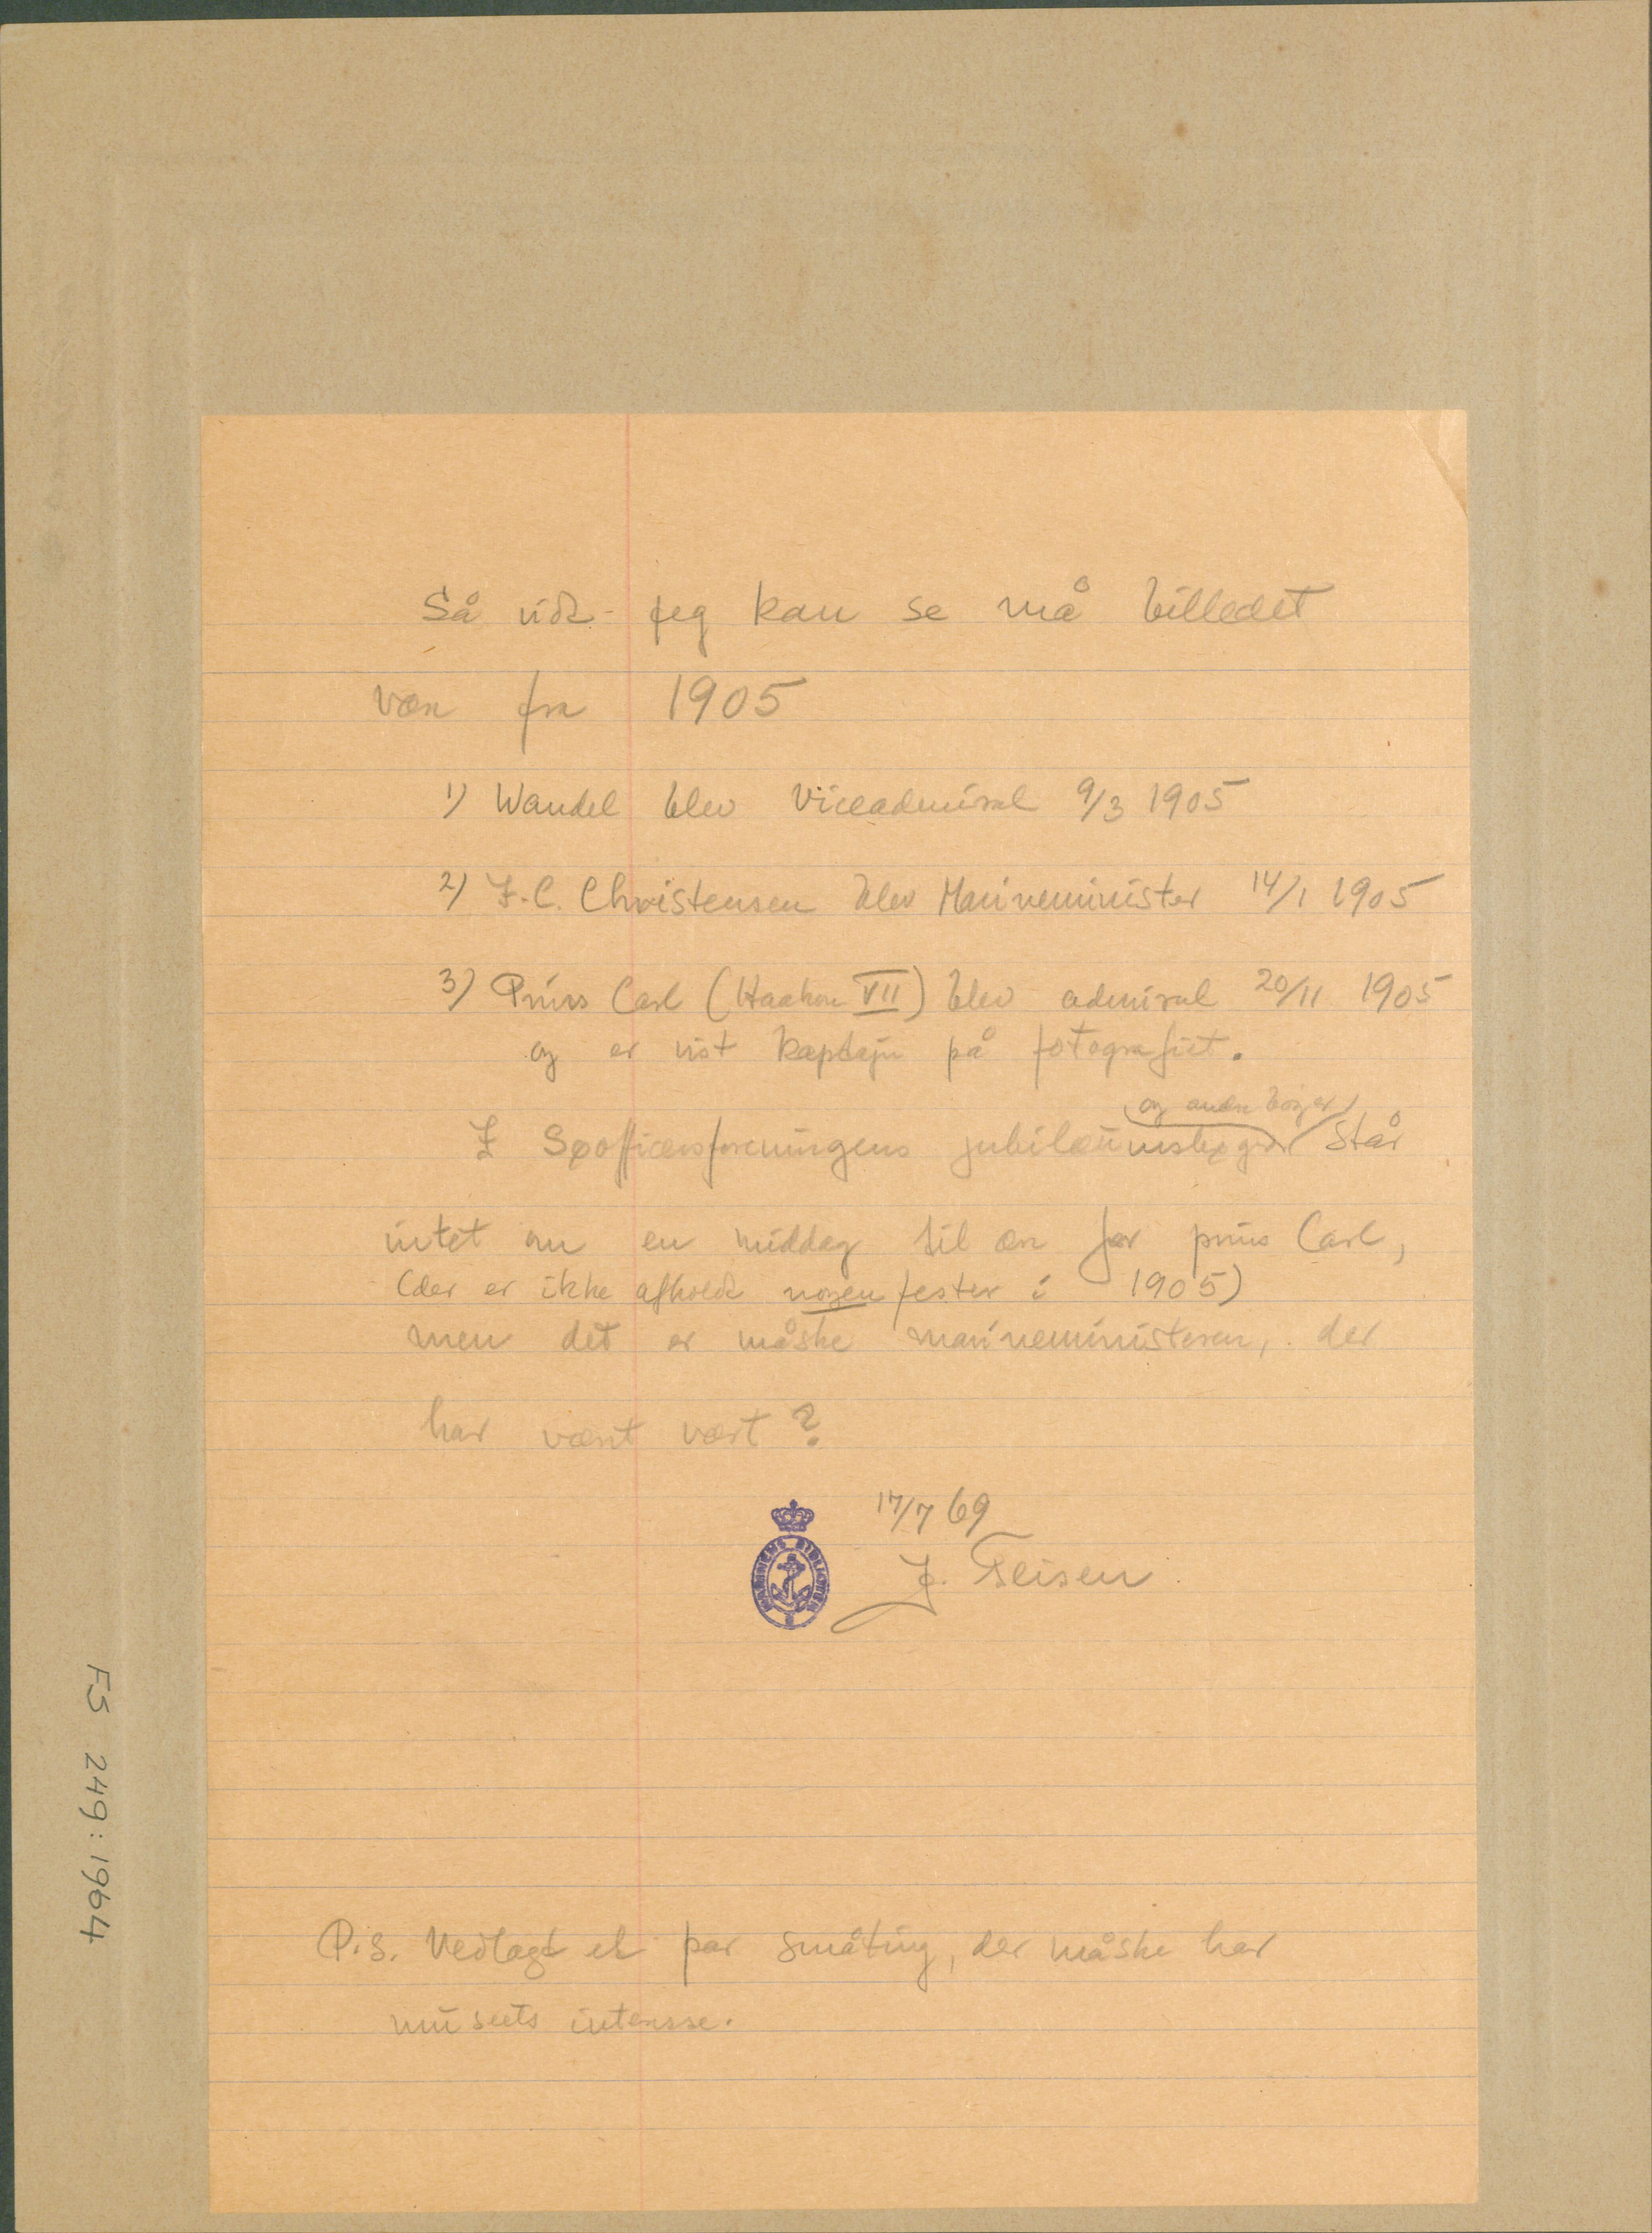 Så vidt jeg kan se må billedet
være fra 1905
1) Wandel blev Viceadmiral 9/3 1905
2) I.C. Christensen blev Marineminister 14/1 1905
3) Prins Carl (Haakon VII) blev admiral 20/11 1905
og er vist kaptajn på fotografiet.
(og andre bøger)
I Søofficersforeningens jubilæumsbøger står
intet om en middag til ære for prins Carl,
(der er ikke afholdt nogen fester i 1905)
men det er måske marineministeren, der
har været vært?
17/7 69
MARINENS BIBLIOTEK
J. Teisen
P.S. Vedlagt et par småting, der måske har
museets interesse.
FS 249:1964